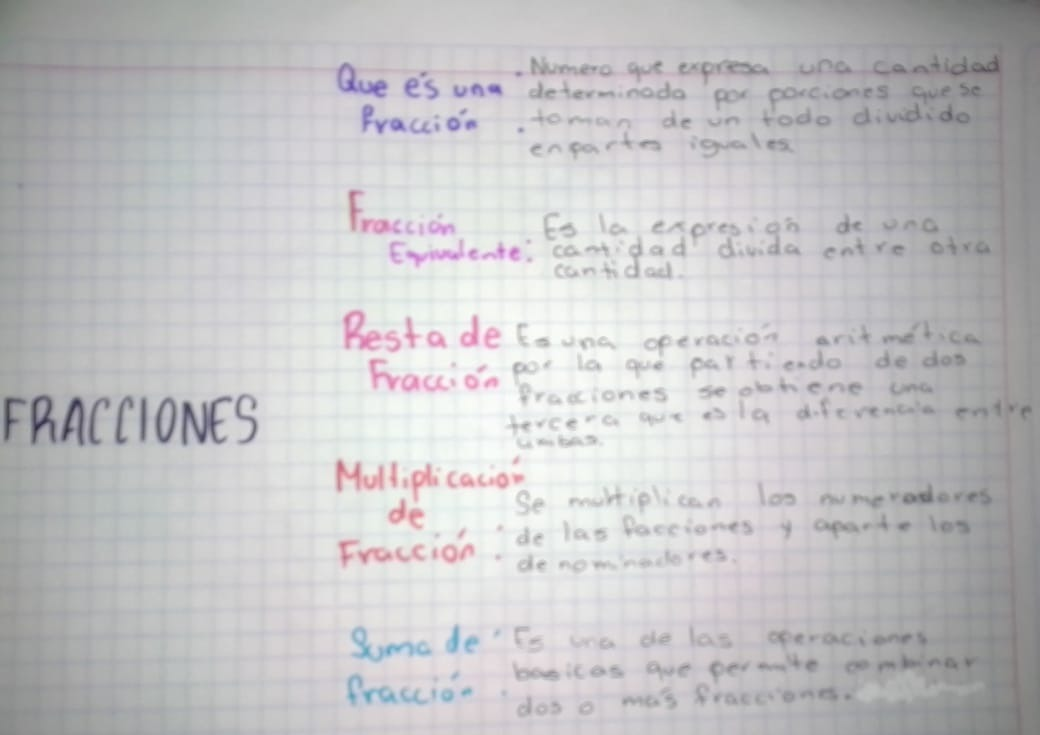 FRACCIONES
Que és una
fracción
Numero que expresa una cantidad
determinada por porciones que se
toman de un todo dividido
en partes iguales
Fracción
Equivalente:
Es la expresión de una
cantidad divida entre otra
cantidad.
Resta de
Fracción
Es una operación aritmética
por la que partiendo de dos
fracciones se obtiene una
tercera que es la diferencia entre
ambas.
Multiplicación
de
Fracción
Se multiplican los numeradores
de las facciones y aparte los
denominadores.
Suma de
fracción
Es una de las operaciones
basicas que permite combinar
dos o más fracciones.